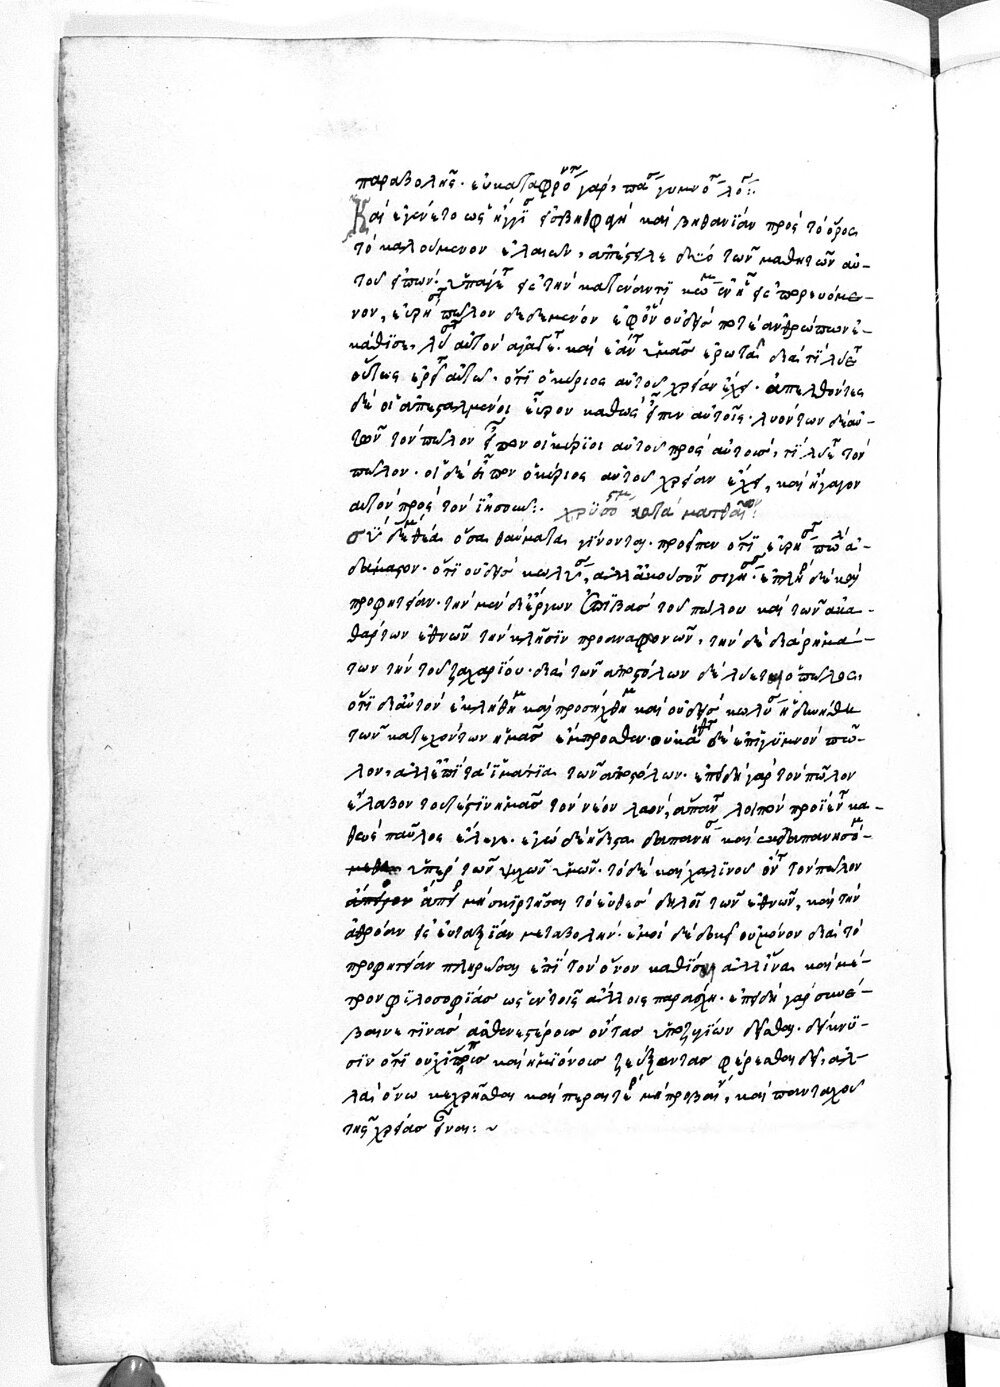 παραβολῆς· εὐκαταφρόντ γάρ, πᾶσ γυμνὸσ λόγ:
Καὶ ἐγένετο ὡς ἤγγισ εἰς βηθφαγὴ καὶ βηθανίαν πρὸς τὸ ὄρος
τὸ καλούμενον ἐλαιῶν, ἀπέστειλε δύο τῶν μαθητῶν αὐ-
τοῦ εἰπών· ὑπάγετ εἰς τὴν κατέναντι κώμ ἐν ᾗ εἰσπορευόμε-
νοι, εὑρήσετ πῶλον δεδεμένον ἐφ' ὃν οὐδεὶς πώποτε ἀνθρώπων ἐ-
κάθισε, λύσ αὐτὸν ἀγάγετ· καὶ ἐάν τ ὑμᾶς ἐρωτᾶ διατί λύετ
οὕτως ἐρεῖτ αὐτῷ, ὅτι ὁ κύριος αὐτοῦ χρείαν ἔχει· ἀπελθόντες
δὲ οἱ ἀπεσταλμένοι εὗρον καθὼς εἶπεν αὐτοῖς· λυόντων δὲ αὐ-
τῶν τὸν πῶλον εἶπον οἱ κύριοι αὐτοῦ πρὸς αὐτούς, τί λύετ τὸν
πῶλον· οἱ δὲ εἶπον ὁ κύριος αὐτοῦ χρείαν ἔχει, καὶ ἤγαγον
αὐτὸν πρὸς τὸν ἰησοῦν:· χρυσοστμ κατὰ ματθαῖον:
σὺ δέ μ θέα ὅσα θαύματα γίνονται· προεῖπεν ὅτι εὑρήσετ πῶλ ἀ-
δάμαστον· ὅτι οὐδεὶς κωλύσ, ἀλλ' ἀκούσαντ σιγήσ· ἐπληρ δὲ καὶ
προφητείαν· τὴν μὲν δι' ἔργων ἐπιβὰς τοῦ πώλου καὶ τῶν ἀκα-
θάρτων ἐθνῶν τὴν κλῆσιν προαναφωνῶν, τὴν δὲ διὰ ῥημά-
των τὴν τοῦ ζαχαρίου· διὰ τῶν ἀποστόλων δὲ λύεται ὁ πῶλος,
ὅτι δι' αὐτῶν ἐκλήθημ καὶ προσήχθημ καὶ οὐδεὶς κωλύσ ἠδυνήθη
τῶν κατεχόντων ἡμᾶς ἔμπροσθεν· οὐ κάθητ δὲ ἐπὶ γυμνὸν πῶ-
λον, ἀλλ' ἐπὶ τὰ ἱμάτια τῶν ἀποστόλων· ἐπειδὴ γὰρ τὸν πῶλον
ἔλαβον τουτέστιν ἡμᾶς τὸν νέον λαόν, ἅπαντ λοιπὸν προΐεντ κα-
θὼς παῦλος ἔλεγε· ἐγὼ δὲ ἥδιστα δαπανήσ καὶ ἐκδαπανησό-
μεθα ὑπὲρ τῶν ψυχῶν ὑμῶν· τὸ δὲ καὶ χαλινοῦ ὄντ τὸν πῶλον
ἄπειρον ἄπειρ μὴ σκιρτῆσαι τὸ εὐθὲς δηλοῖ τῶν ἐθνῶν, καὶ τὴν
ἀθρόαν εἰς εὐταξίαν μεταβολήν· ἐμοὶ δὲ δοκεῖ οὐ μόνον διὰ τὸ
προφητείαν πληρῶσαι ἐπὶ τὸν ὄνον καθίσαι ἀλλ' ἵνα καὶ μέ-
τρον φιλοσοφίας ὡς ἐν τοῖς ἄλλοις παράσχῃ· ἐπειδὴ γὰρ συνέ-
βαινέ τινας ἀσθενεστέρους ὄντας ὑποζυγίων δεῖσθαι· δείκνυ-
σιν ὅτι οὐχ ἵππους καὶ ἡμιόνους ζεύξαντας φέρεσθαι δεῖ, ἀλ-
λὰ ὄνῳ κεχρῆσθαι καὶ περαιτέρ μὴ προβαίν, καὶ πανταχοῦ
τῆς χρείας εἶναι: ~